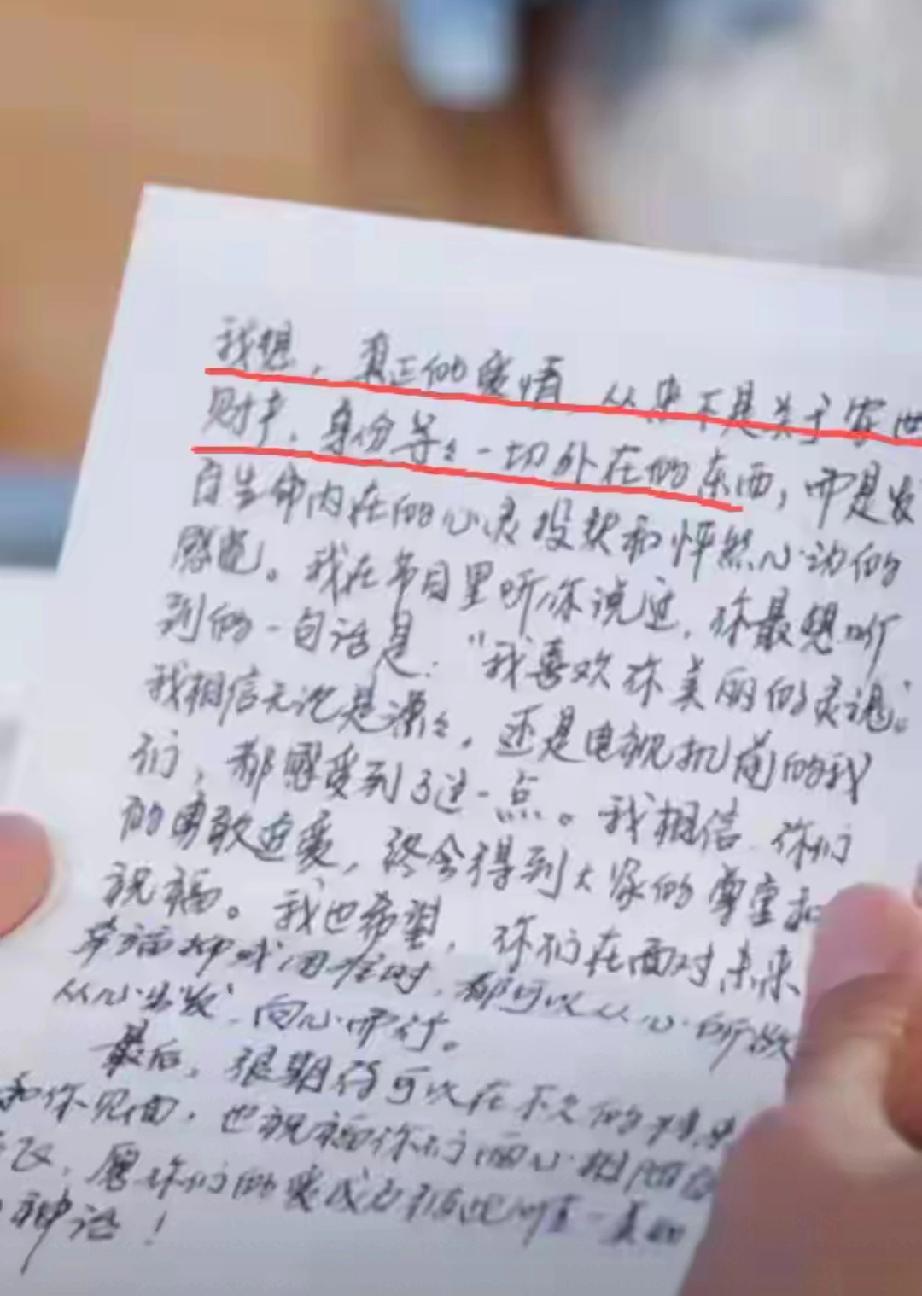 我想，真正的爱情，从来不是关于家世
财产、身份等々一切外在的东西，而是发
自生命内在的心灵投契和怦然心动的
感觉。我在节目里听你说过，你最想听
到的一句话是："我喜欢你美丽的灵魂"
我相信无论是源々，还是电视机前的我
们，都感受到了这一点。我相信，你们
的勇敢追爱，终会得到大家的尊重和
祝福。我也希望，你们在面对未来
幸福抑或困难时，都可以从心所欲
从心出发，向心而行。
最后，很期待可以在不久的将来
和你见面，也祝福你们两心相
愿你们的爱成为彼此唯一
神话！